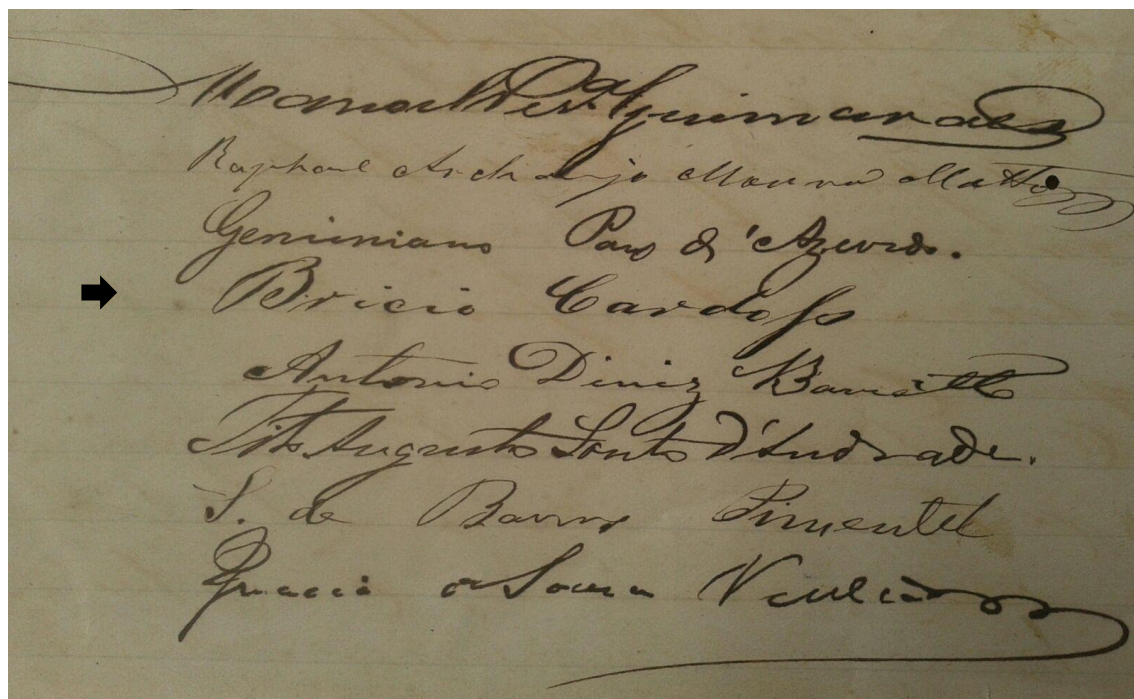 Manoel Per.ª Guimaraes
Raphael Archanjo Moura Mattos
Geminiano Paes d'Azevedo.
Bricio Cardoso
Antonio Diniz Barretto
Tito Augusto Souto d'Andrade.
S. de Barros Pimentel
Ignacio de Souza Valladão